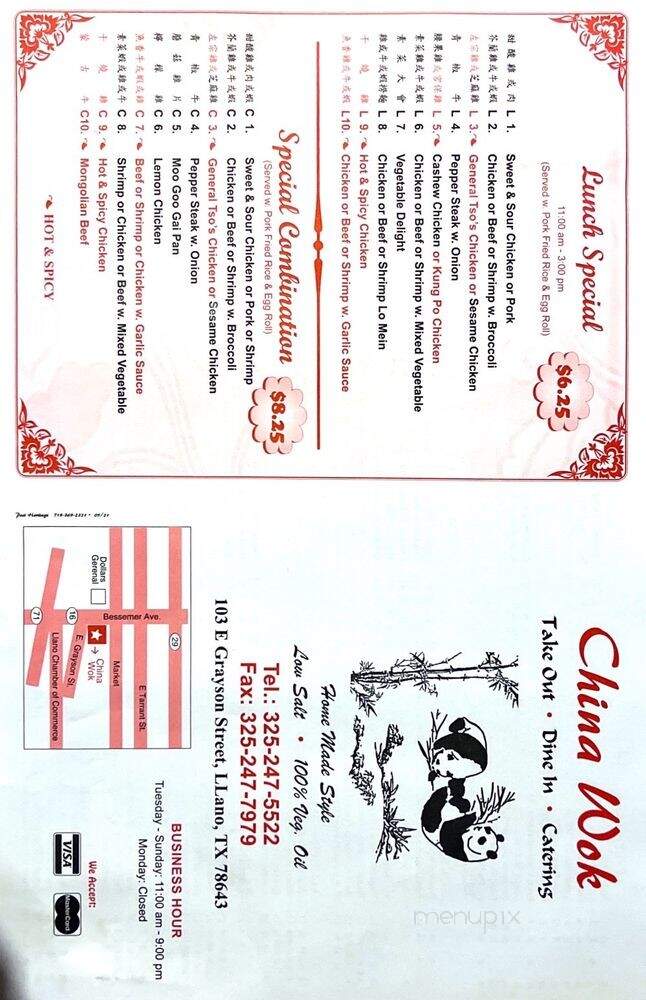 Lunch Special
11:00 am - 3:00 pm
(Served w. Pork Fried Rice & Egg Roll)
$6.25
甜酸雞或肉 L 1. Sweet & Sour Chicken or Pork
芥蘭雞或牛或蝦 L 2. Chicken or Beef or Shrimp w. Broccoli
左宗雞或芝麻雞 L 3. General Tso's Chicken or Sesame Chicken
青椒牛 L 4. Pepper Steak w. Onion
腰果雞或宮保雞 L 5. Cashew Chicken or Kung Po Chicken
素菜雞或牛或蝦 L 6. Chicken or Beef or Shrimp w. Mixed Vegetable
素菜大會 L 7. Vegetable Delight
雞或牛或蝦撈麵 L 8. Chicken or Beef or Shrimp Lo Mein
干燒雞 L 9. Hot & Spicy Chicken
魚香雞或牛或蝦 L10. Chicken or Beef or Shrimp w. Garlic Sauce
Special Combination
(Served w. Pork Fried Rice & Egg Roll)
$8.25
甜酸雞或肉或蝦 C 1. Sweet & Sour Chicken or Pork or Shrimp
芥蘭雞或牛或蝦 C 2. Chicken or Beef or Shrimp w. Broccoli
左宗雞或芝麻雞 C 3. General Tso's Chicken or Sesame Chicken
青椒牛 C 4. Pepper Steak w. Onion
蘑菇雞片 C 5. Moo Goo Gai Pan
檸檬雞 C 6. Lemon Chicken
魚香牛或蝦或雞 C 7. Beef or Shrimp or Chicken w. Garlic Sauce
素菜蝦或雞或牛 C 8. Shrimp or Chicken or Beef w. Mixed Vegetable
干燒雞 C 9. Hot & Spicy Chicken
蒙古牛 C10. Mongolian Beef
HOT & SPICY
China Wok
Take Out • Dine In • Catering
Home Made Style
Low Salt • 100% Veg. Oil
Tel.: 325-247-5522
Fax: 325-247-7979
103 E Grayson Street, LLano, TX 78643
29
E Tarrant St.
Market
Bessemer Ave.
Dollars
Gerenal
China
Wok
E. Grayson St.
16
Llano Chamber of Commerce
71
BUSINESS HOUR
Tuesday - Sunday: 11:00 am - 9:00 pm
Monday: Closed
We Accept:
VISA
MasterCard
menupix